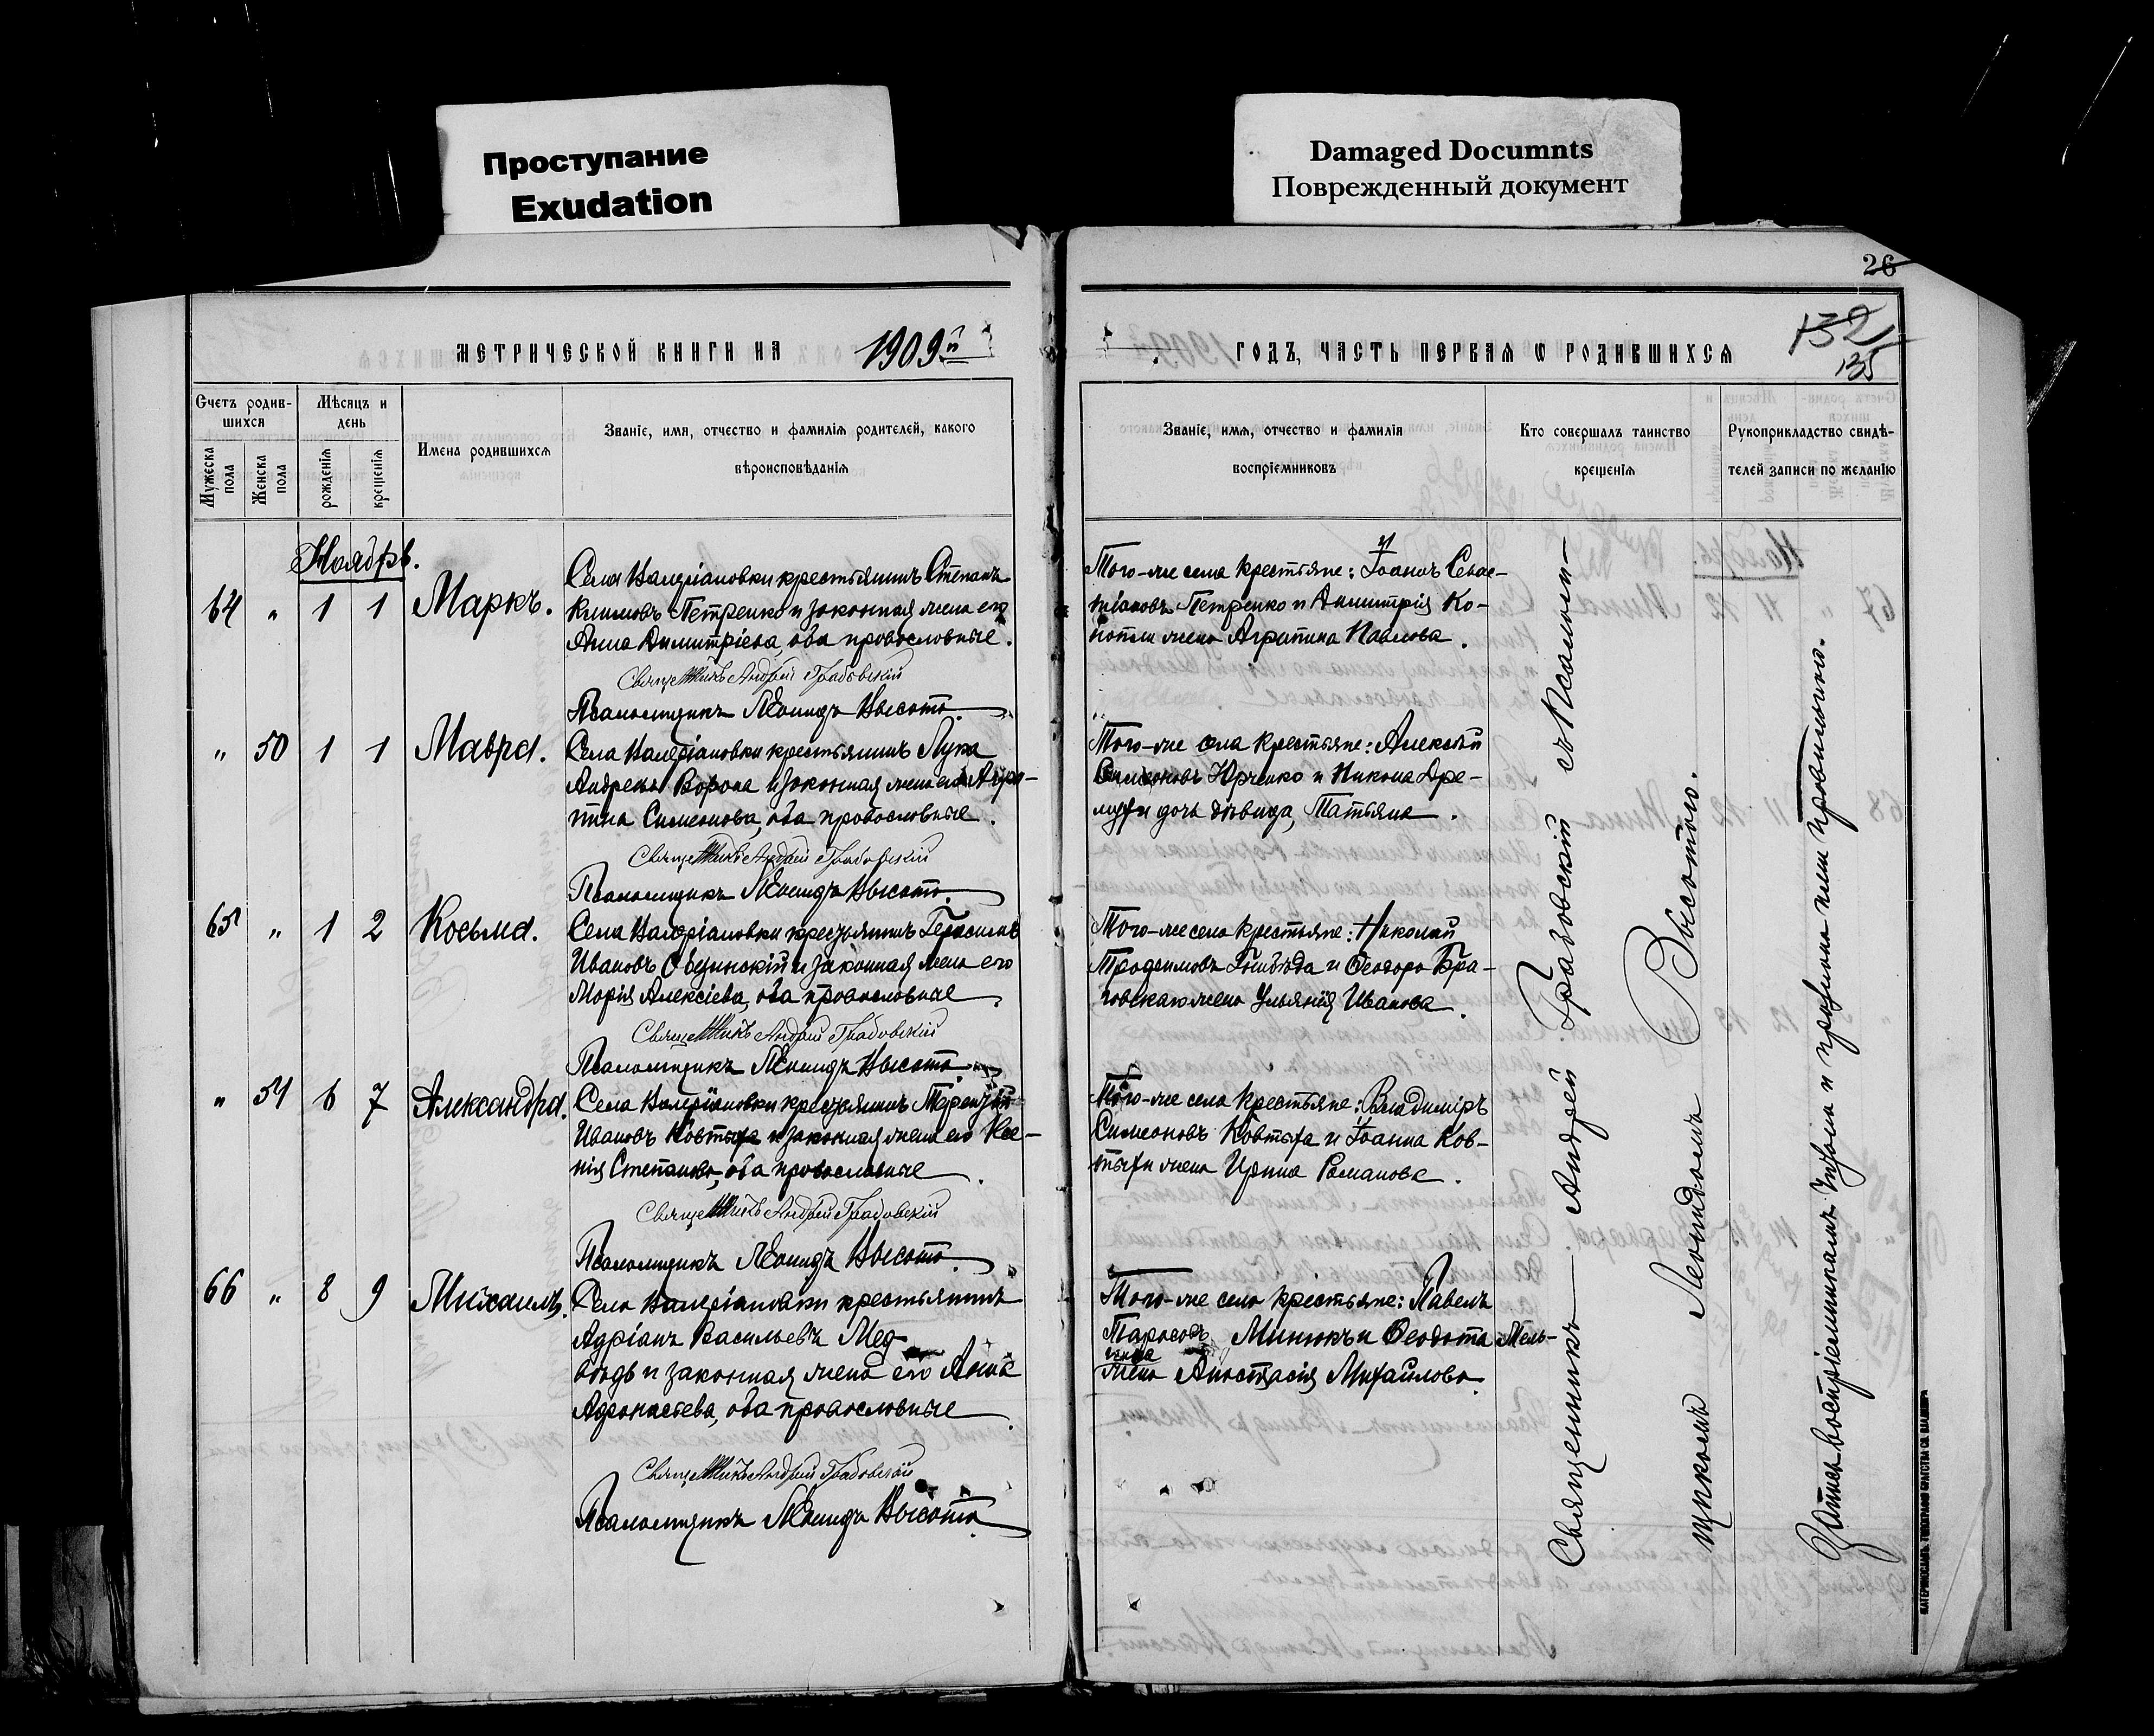 Проступание
Exudation
Damaged Documnts
Поврежденный документ
26
132
135
МЕТРИЧЕСКОЙ КНИГИ НА 1909й
ГОДЪ, ЧАСТЬ ПЕРВАЯ Ѡ РОДИВШИХСЯ
Счетъ родив-
шихся
Мѣсяцъ и
день
Мужеска
пола
Женска
пола
рожденія
крещенія
Имена родившихся
Званіе, имя, отчество и фамилія родителей, какого
вѣроисповѣданія
Званіе, имя, отчество и фамилія
воспріемниковъ
Кто совершалъ таинство
крещенія
Рукоприкладство свидѣ-
телей записи по желанію
Ноябрь.
64 " 1 1 Маркъ.
Села Валеріановки крестьянинъ Стефанъ
Климовъ Петренко и законная жена его
Анна Димитріева, оба православные.
Священникъ Андрей Грабовскій
Псаломщикъ Леонидъ Высота
Того-же села крестьяне: Іоаннъ Севас-
тіановъ Петренко и Димитрія Ко-
нопли жена Агрипина Павлова.
" 50 1 1 Мавра.
Села Валеріановки крестьянинъ Лука
Андреевъ Ворона и законная жена его Агри-
пина Симеонова, оба православные.
Священникъ Андрей Грабовскій
Псаломщикъ Леонидъ Высота
Того-же села крестьяне: Алексѣй
Симеоновъ Юрченко и Никона Дре-
мухи дочь дѣвица, Татьяна.
65 " 1 2 Косьма.
Села Валеріановки крестьянинъ Герасимъ
Ивановъ и законная жена его
Марія Алексіева, оба православные.
Священникъ Андрей Грабовскій
Псаломщикъ Леонидъ Высота
Того-же села крестьяне: Николай
Трофимовъ и Ѳеодора Бра-
говскаго жена Ульянія Иванова.
" 51 6 7 Александра.
Села Валеріановки крестьянинъ Терентій
Ивановъ Ковтуха и законная жена его Ксе-
нія Стефанова, оба православные.
Священникъ Андрей Грабовскій
Псаломщикъ Леонидъ Высота
Того-же села крестьяне: Владиміръ
Симеоновъ Ковтуха и Іоанна Ков-
тухи жена Ирина Романова.
66 " 8 9 Михаилъ.
Села Валеріановки крестьянинъ
Адріанъ Васильевъ Мед-
вѣдь и законная жена его Анна
Афанасьева, оба православные.
Священникъ Андрей Грабовскій
Псаломщикъ Леонидъ Высота
Того-же села крестьяне: Павелъ
Тарасовъ Минюкъ и Ѳеодота Мель-
ника
жена Анастасія Михайлова.
Священникъ Андрей Грабовскій съ Псалом-
щикомъ Леонидомъ Высотою.
Запись воспріемникамъ читана и признана ими правильною.